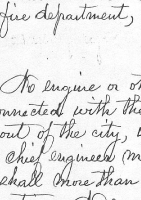 fire department,
No engine or ot
onnected with the
out of the city, u
chief engineer m
shall more than